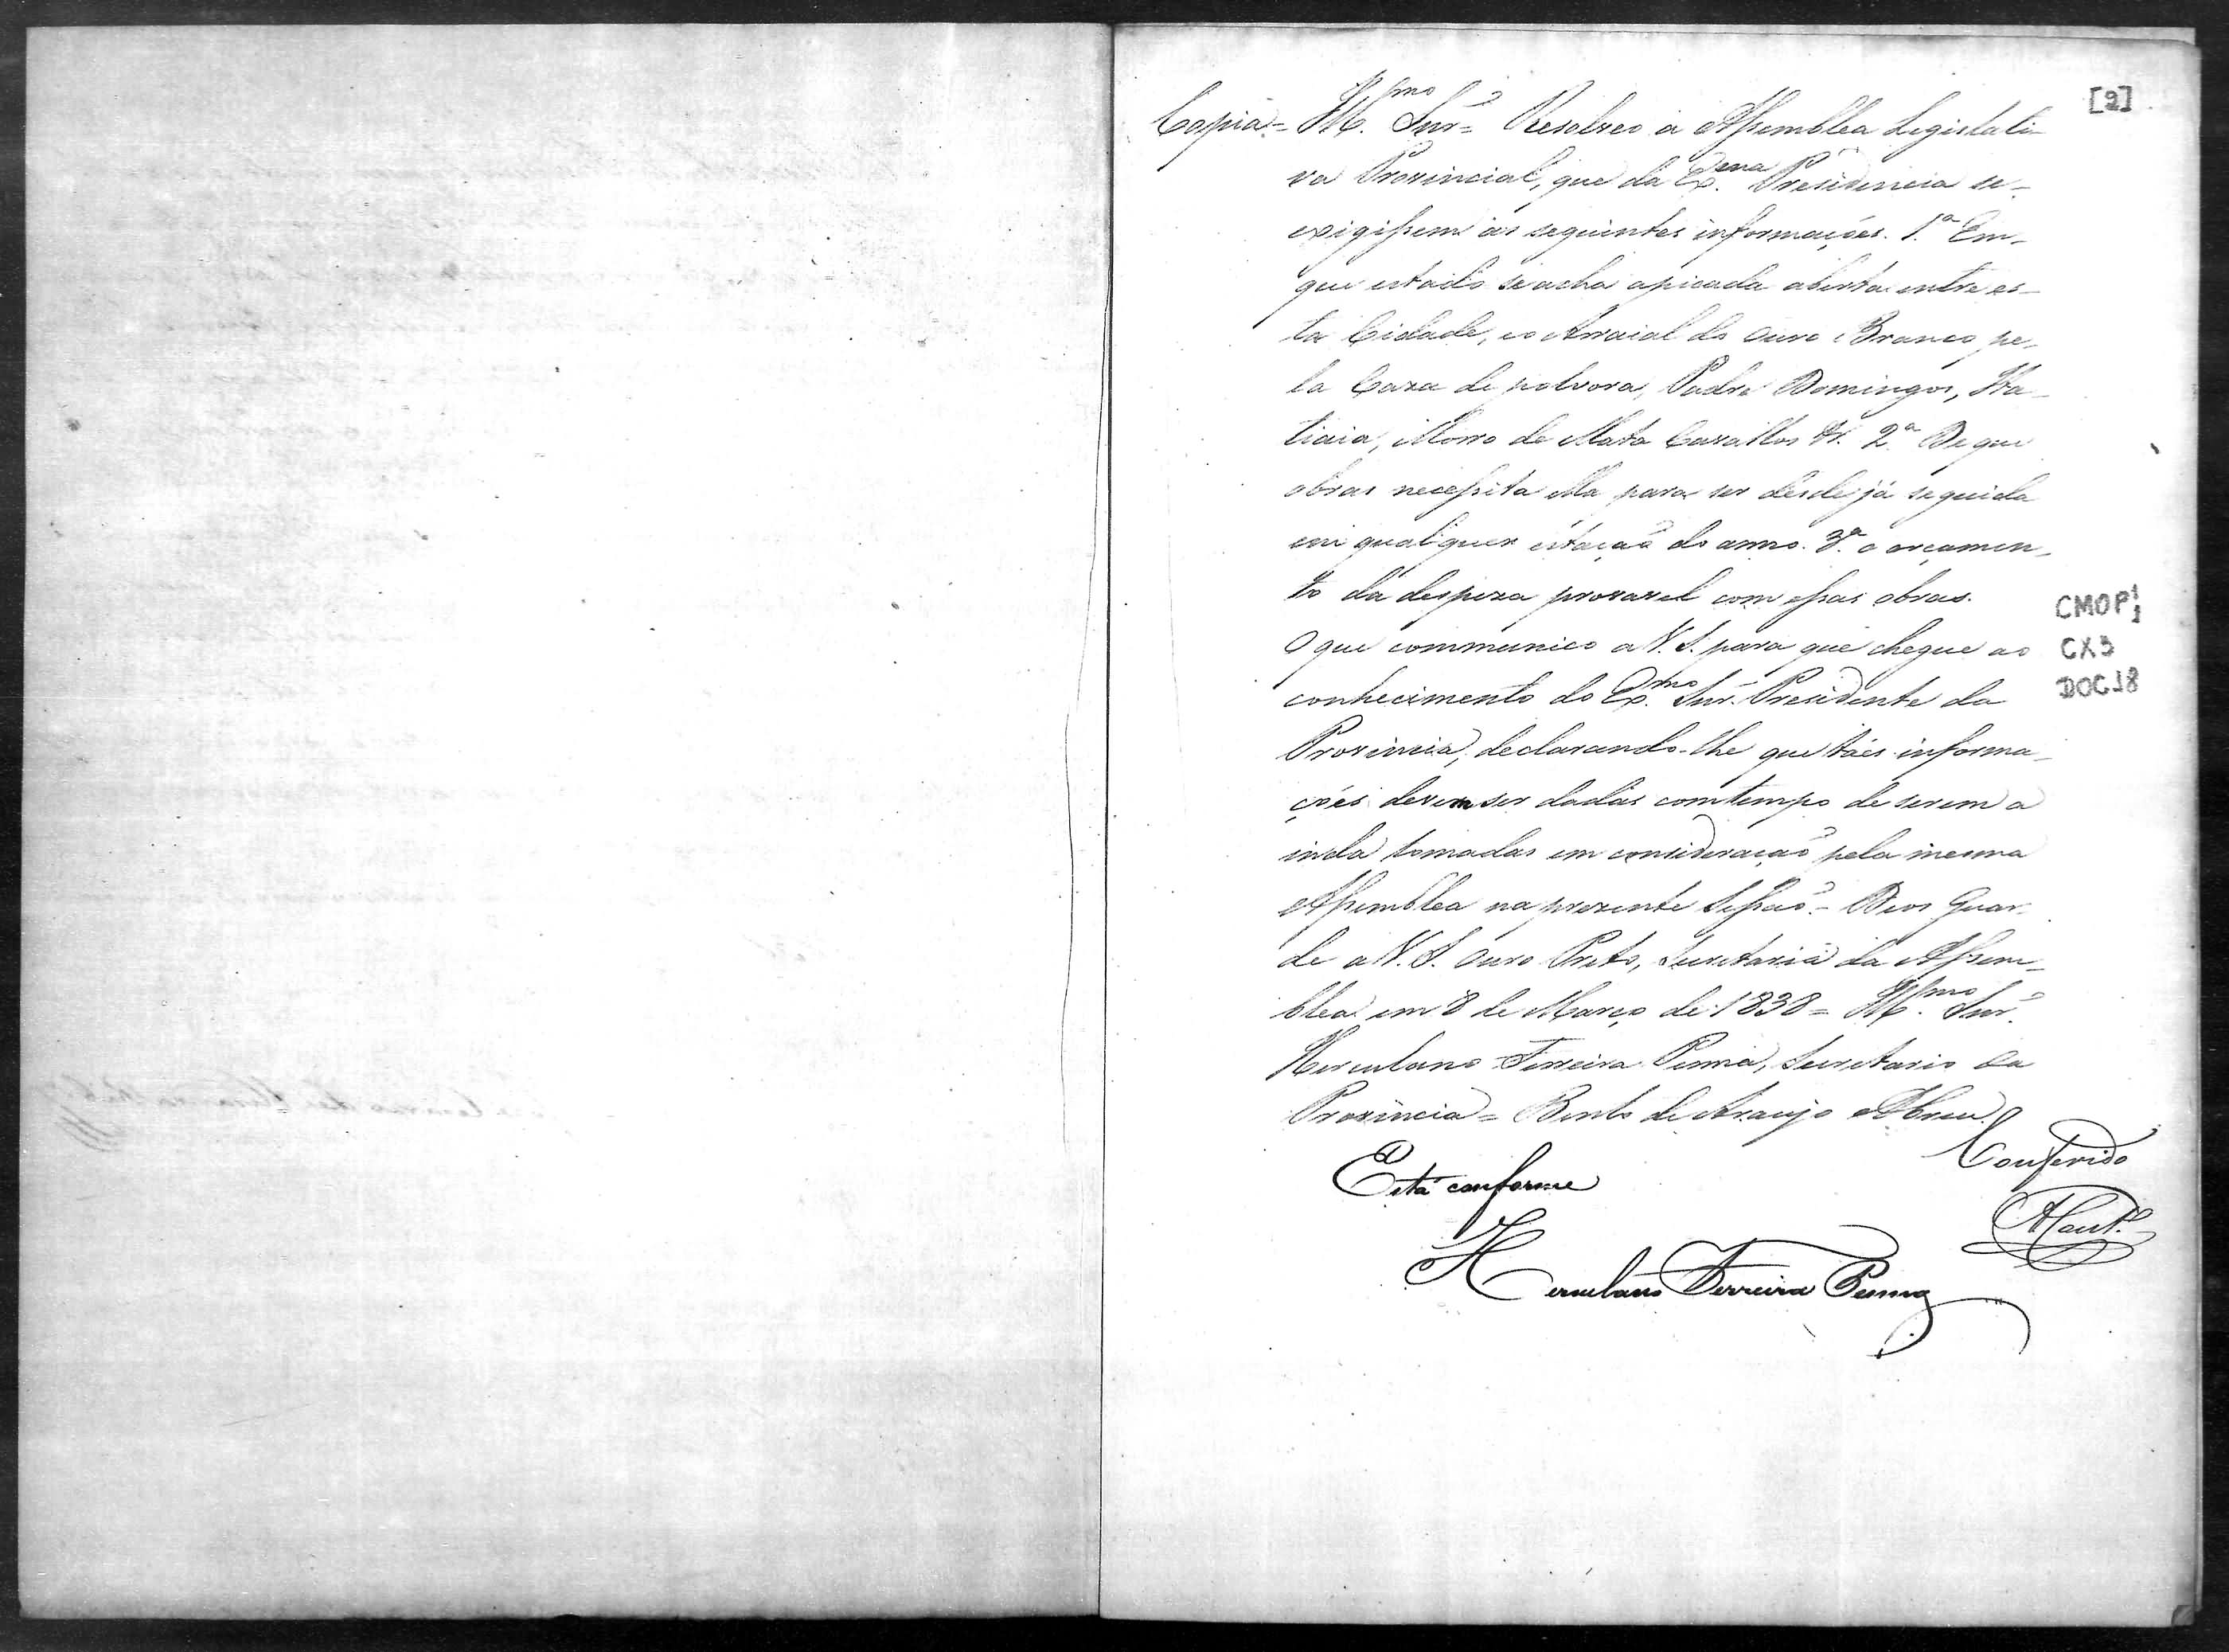 [2]
Copia = Ill.mo Snr = Resolveo a Assemblea Legislati-
va Provincial, que da Ex.ma Presidencia se
exigissem as seguintes informações. 1.ª Em
que estado se acha apicada aberta entre es-
ta Cidade, eo Arraial do Ouro Branco pe-
la Caza de polvora, Padre Domingos, Ita-
tiaia, Morro de Mata Cavallos &. 2.ª De que
obras necessita ella para ser desde já seguida
em qualquer estação do anno. 3.ª o orçamen-
to da despeza provavel com essas obras.
O que communico a V. S. para que chegue ao
conhecimento do Ex.mo Snr. Presidente da
Provincia, declarando-lhe que táes informa-
ções devem ser dadas com tempo de serem a
inda tomadas em consideração pela mesma
Assemblea na prezente Sessão. - Deos Guar-
de a V. S. Ouro Preto, Secretaria da Assem-
blea em 8 de Março de 1838 = Ill.mo Snr.
Herculano Ferreira Penna, Secretario da
Provincia = Bento de Araujo Abreu.
Conferido
Está conforme
Herculano Ferreira Penna
CMOP 1/1
CX3
DOC18